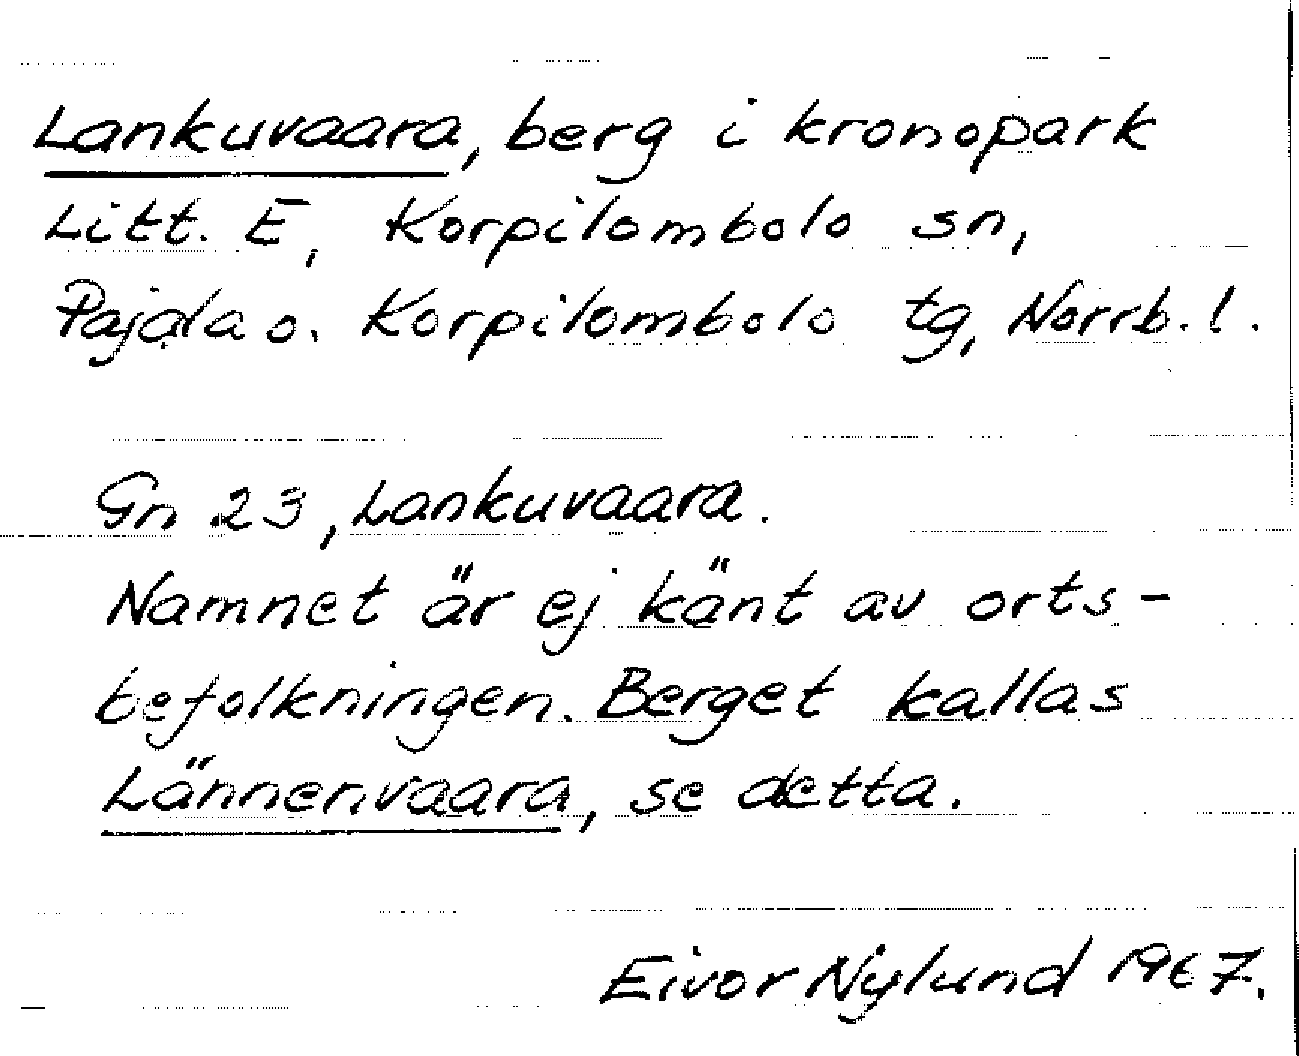 Lankuvaara, berg i kronopark
Litt. E, Korpilombolo sn,
Pajala o. Korpilombolo tg, Norrb. l.
Gn 23, Lankuvaara.
Namnet är ej känt av orts-
befolkningen. Berget kallas
Lännenvaara, se detta.
Eivor Nylund 1967.